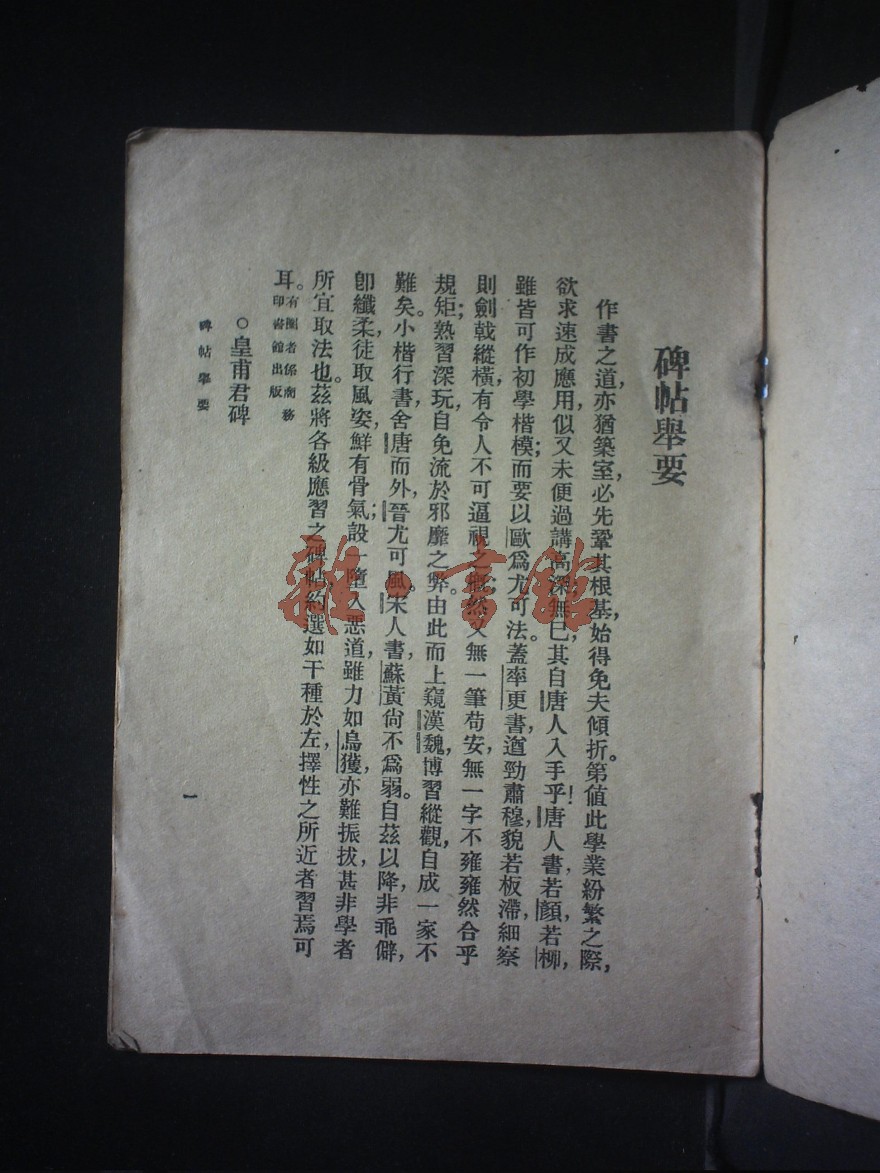 碑帖舉要
作書之道，亦猶築室，必先鞏其根基，始得免夫傾折。第值此學業紛繁之際，
欲求速成應用，似又未便過講高深，無已，其自唐人入手乎！唐人書，若顏，若柳，
雖皆可作初學楷模；而要以歐爲尤可法。蓋率更書遒勁肅穆，貌若板滯，細察
則劍戟縱橫，有令人不可逼視之槪；然又無一筆苟安，無一字不雍雍然合乎
規矩；熟習深玩，自免流於邪靡之弊。由此而上窺漢魏，博習縱觀，自成一家不
難矣。小楷行書，舍唐而外，晉尤可風。宋人書，蘇黃尙不爲弱。自茲以降，非乖僻，
卽纖柔，徒取風姿，鮮有骨氣；設一墮入惡道，雖力如烏獲，亦難振拔，甚非學者
所宜取法也。茲將各級應習之碑帖，約選如干種於左，擇性之所近者習焉可
耳。有圈者係商務印書館出版
○皇甫君碑
碑帖舉要
一
雜·書館